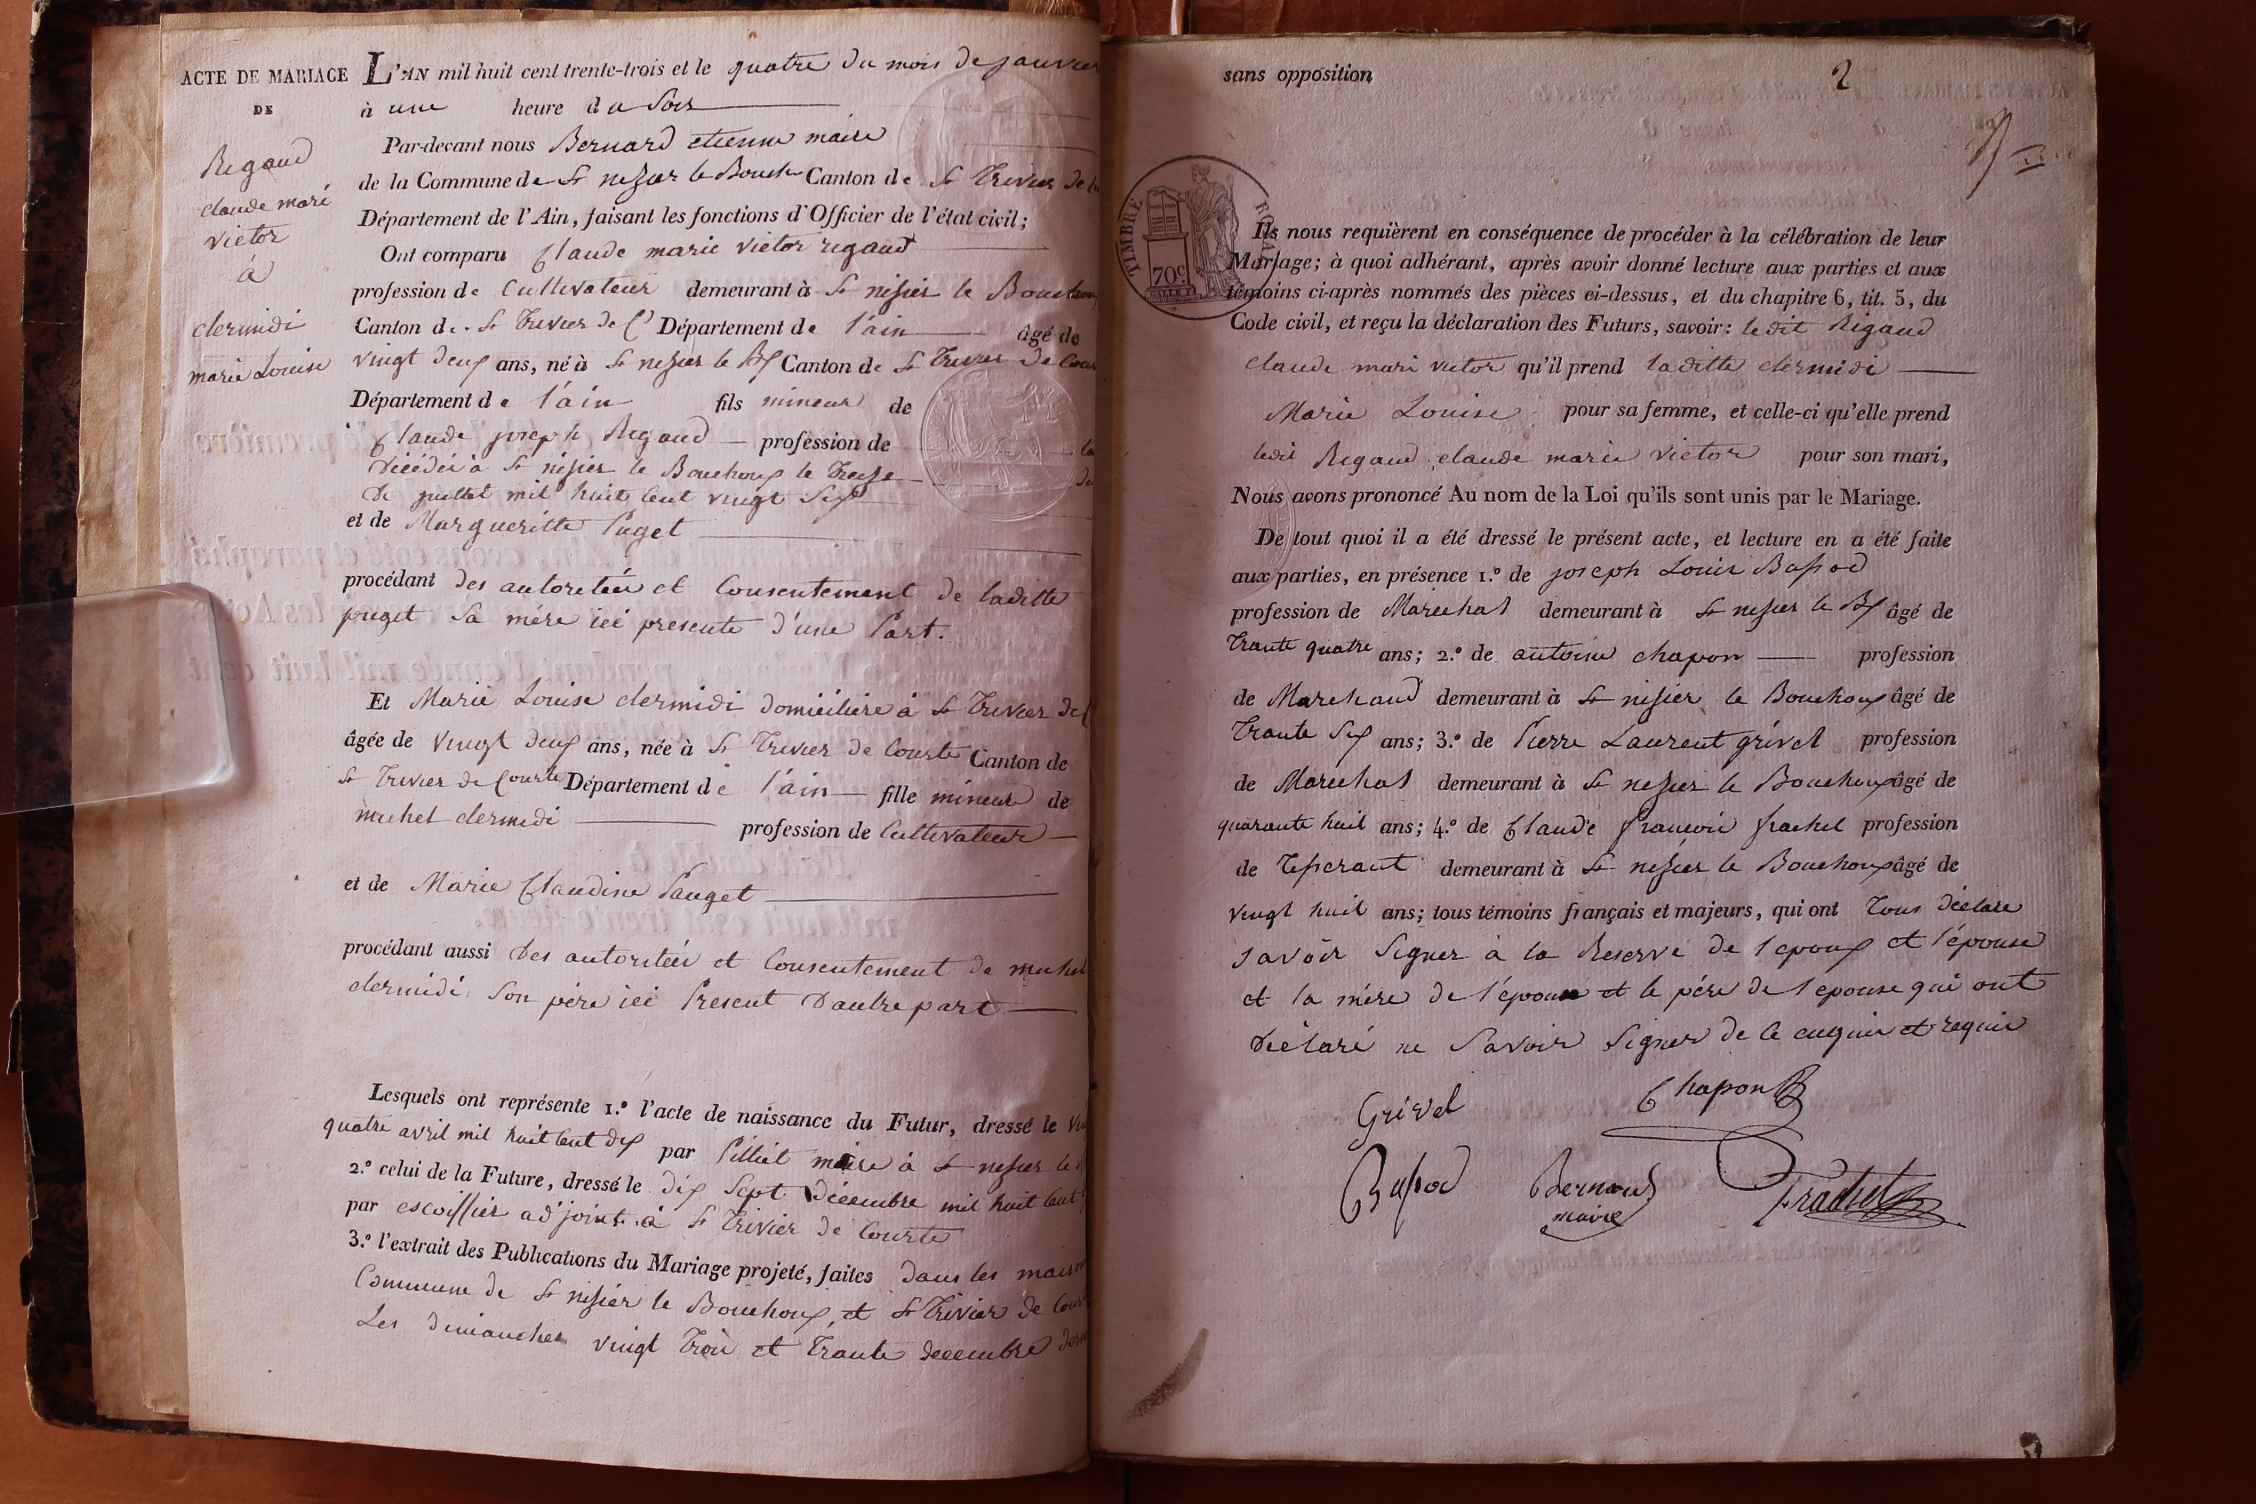 ACTE DE MARIAGE
DE
Rigaud
claude mari
victor
à
clermidi
marie Louise
L'AN mil huit cent trente-trois et le quatre du mois de janvier
à une heure du Soir
Par-devant nous Bernard etienne maire
de la Commune de St nizier le Bouchoux Canton de St Trivier de
Département de l'Ain, faisant les fonctions d'Officier de l'état civil;
Ont comparu Claude marie victor rigaud
profession de Cultivateur demeurant à St nisier le Bouchoux
Canton de St Trivier de C. Département de l'ain âgé de
vingt deux ans, né à St nizier le Bx Canton de St Trivier de Cour
Département de l'ain fils mineur de
Claude joseph Rigaud profession de
décédé à St nisier le Bouchoux le Treize
de juillet mil huit cent vingt Six
et de Margueritte Puget
procédant des autoritée et Consentement de laditte
puget Sa mére ici presente d'une Part.
Et Marie Louise clermidi domiciliére à St Trivier de C
âgée de vingt deux ans, née à St Trivier de Courte Canton de
St Trivier de Courte Département de l'ain fille mineure de
michel clermidi profession de Cultivateur
et de Marie Claudine Pauget
procédant aussi des autoritée et Consentement de michel
clermidi Son pére ici Present D'autre part
Lesquels ont représente 1.º l'acte de naissance du Futur, dressé le
quatre avril mil huit cent dix par Pilliet maire à St nizier le
2.º celui de la Future, dressé le dix Sept décembre mil huit cent
par escoiffier adjoint à St Trivier de Courte
3.º l'extrait des Publications du Mariage projeté, faites dans les maison
Commune de St nisier le Bouchoux, et St Trivier de Cour
Les dimanches vingt Trois et Trante decembre
sans opposition
2
TIMBRE ROYAL
70 c.
Ils nous requièrent en conséquence de procéder à la célébration de leur
Mariage; à quoi adhérant, après avoir donné lecture aux parties et aux
témoins ci-après nommés des pièces ci-dessus, et du chapitre 6, tit. 5, du
Code civil, et reçu la déclaration des Futurs, savoir: ledit Rigaud
claude mari victor qu'il prend laditte clermidi
Marie Louise pour sa femme, et celle-ci qu'elle prend
ledit Rigaud claude marie victor pour son mari,
Nous avons prononcé Au nom de la Loi qu'ils sont unis par le Mariage.
De tout quoi il a été dressé le présent acte, et lecture en a été faite
aux parties, en présence 1.º de joseph Louis Bassod
profession de Marechal demeurant à St nizier le Bx âgé de
Trante quatre ans; 2.º de antoine chapon profession
de Marchand demeurant à St nisier le Bouchoux âgé de
Trante Six ans; 3.º de Pierre Laurent grivel profession
de Marechal demeurant à St nizier le Bouchoux âgé de
quarante huit ans; 4.º de Claude francoi frachet profession
de Tisserant demeurant à St nizier le Bouchoux âgé de
vingt huit ans; tous témoins français et majeurs, qui ont Tous déclare
savoir Signer à la Reserve de l'epoux et l'épouse
et la mére de l'époux et le pére de l'epouse qui ont
déclaré ne Savoir Signer de ce enquis et requis
Grivel
Chapon
Bassod
Bernard
maire
Frachet